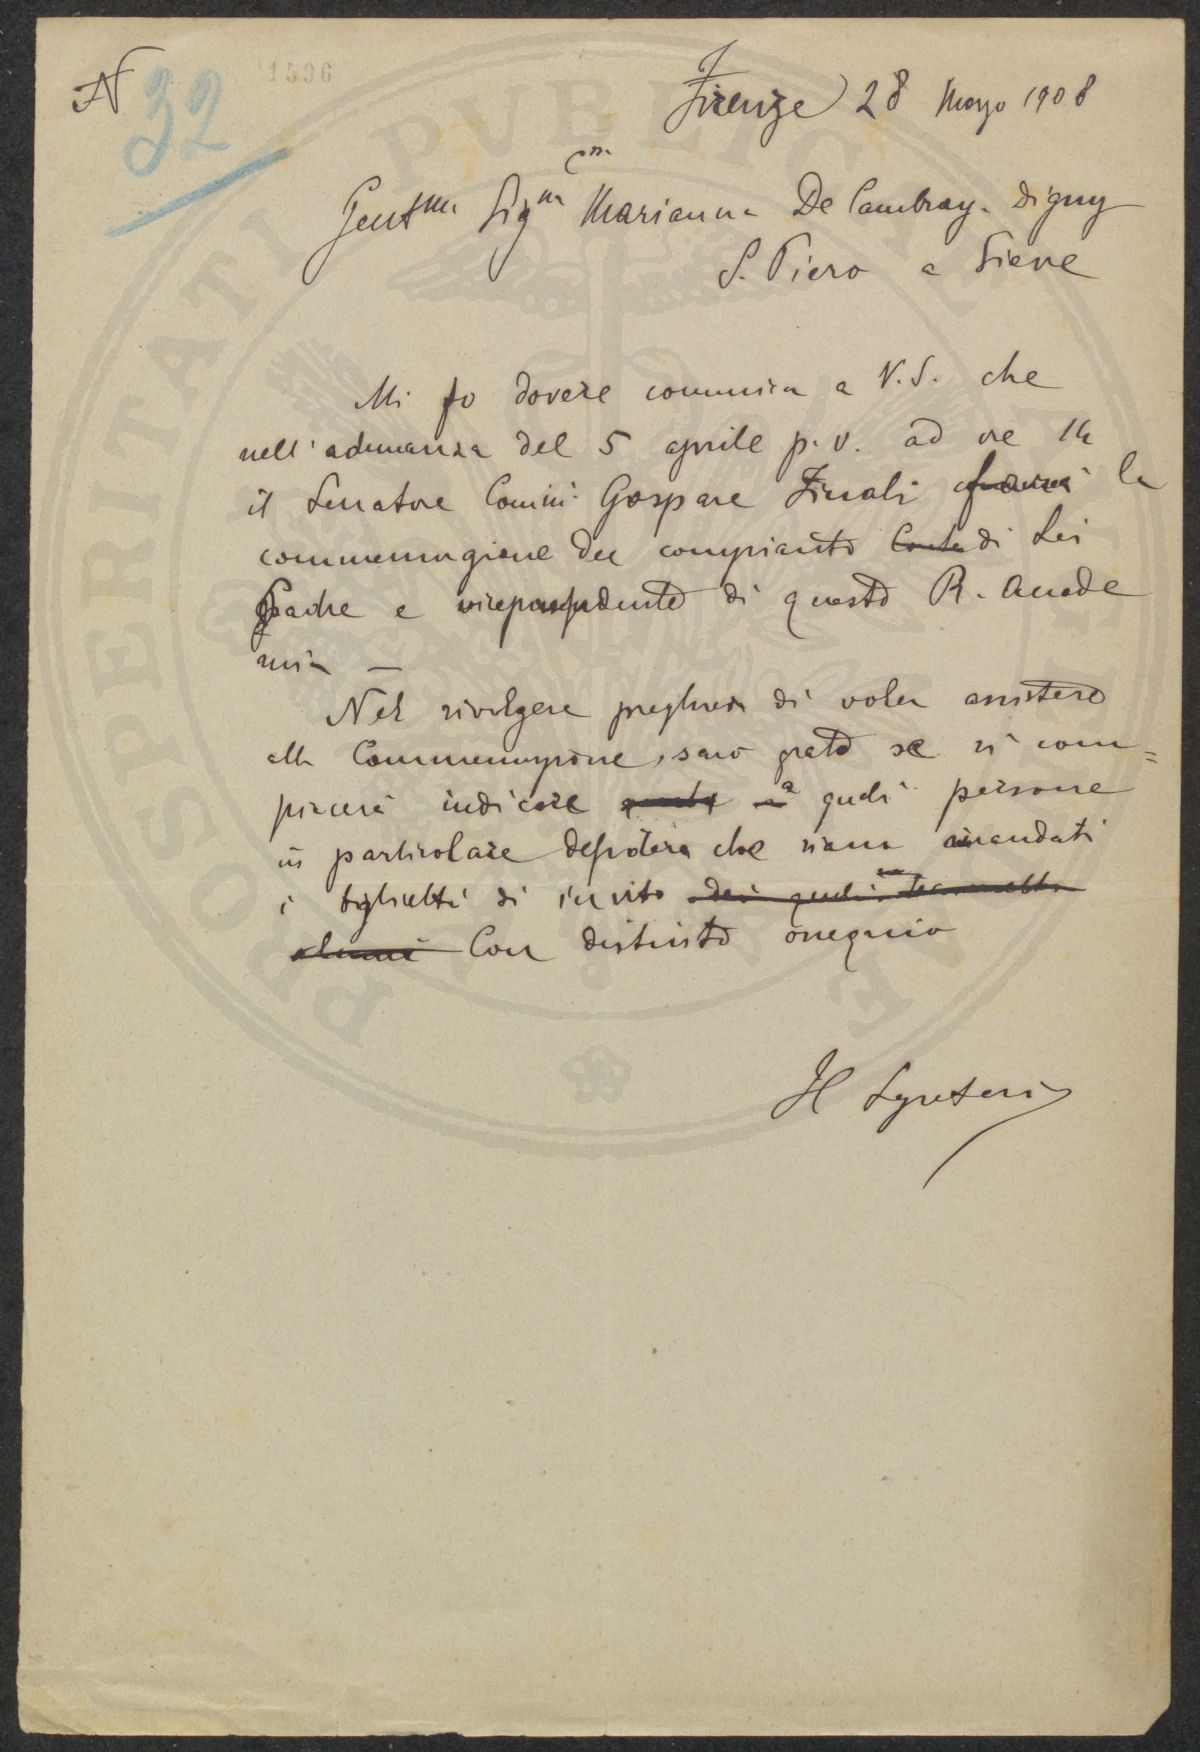 N 32
1536
Firenze 28 Marzo 1908
Gentma Sigra Cssa Marianna De Cambray-Digny
S. Piero a Sieve
Mi fo dovere comunica a V.S. che
nell'adunanza del 5 aprile p.v. ad ore 14
il Senatore Comm. Gaspare Finali farà la
commemorazione del compianto Conte di Lei
Padre e vicepresidente di questa R. Accade
mia —
Nel rivolgere preghiera di voler assistere
alla Commemorazione, sarò grato se si com=
piacerà indicare a quali persone
in particolare desidera che siano mandati
i biglietti di invito dei quali
alcuni Con distinto ossequio
Il Segretario
PROSPERITATI PVBLICAE